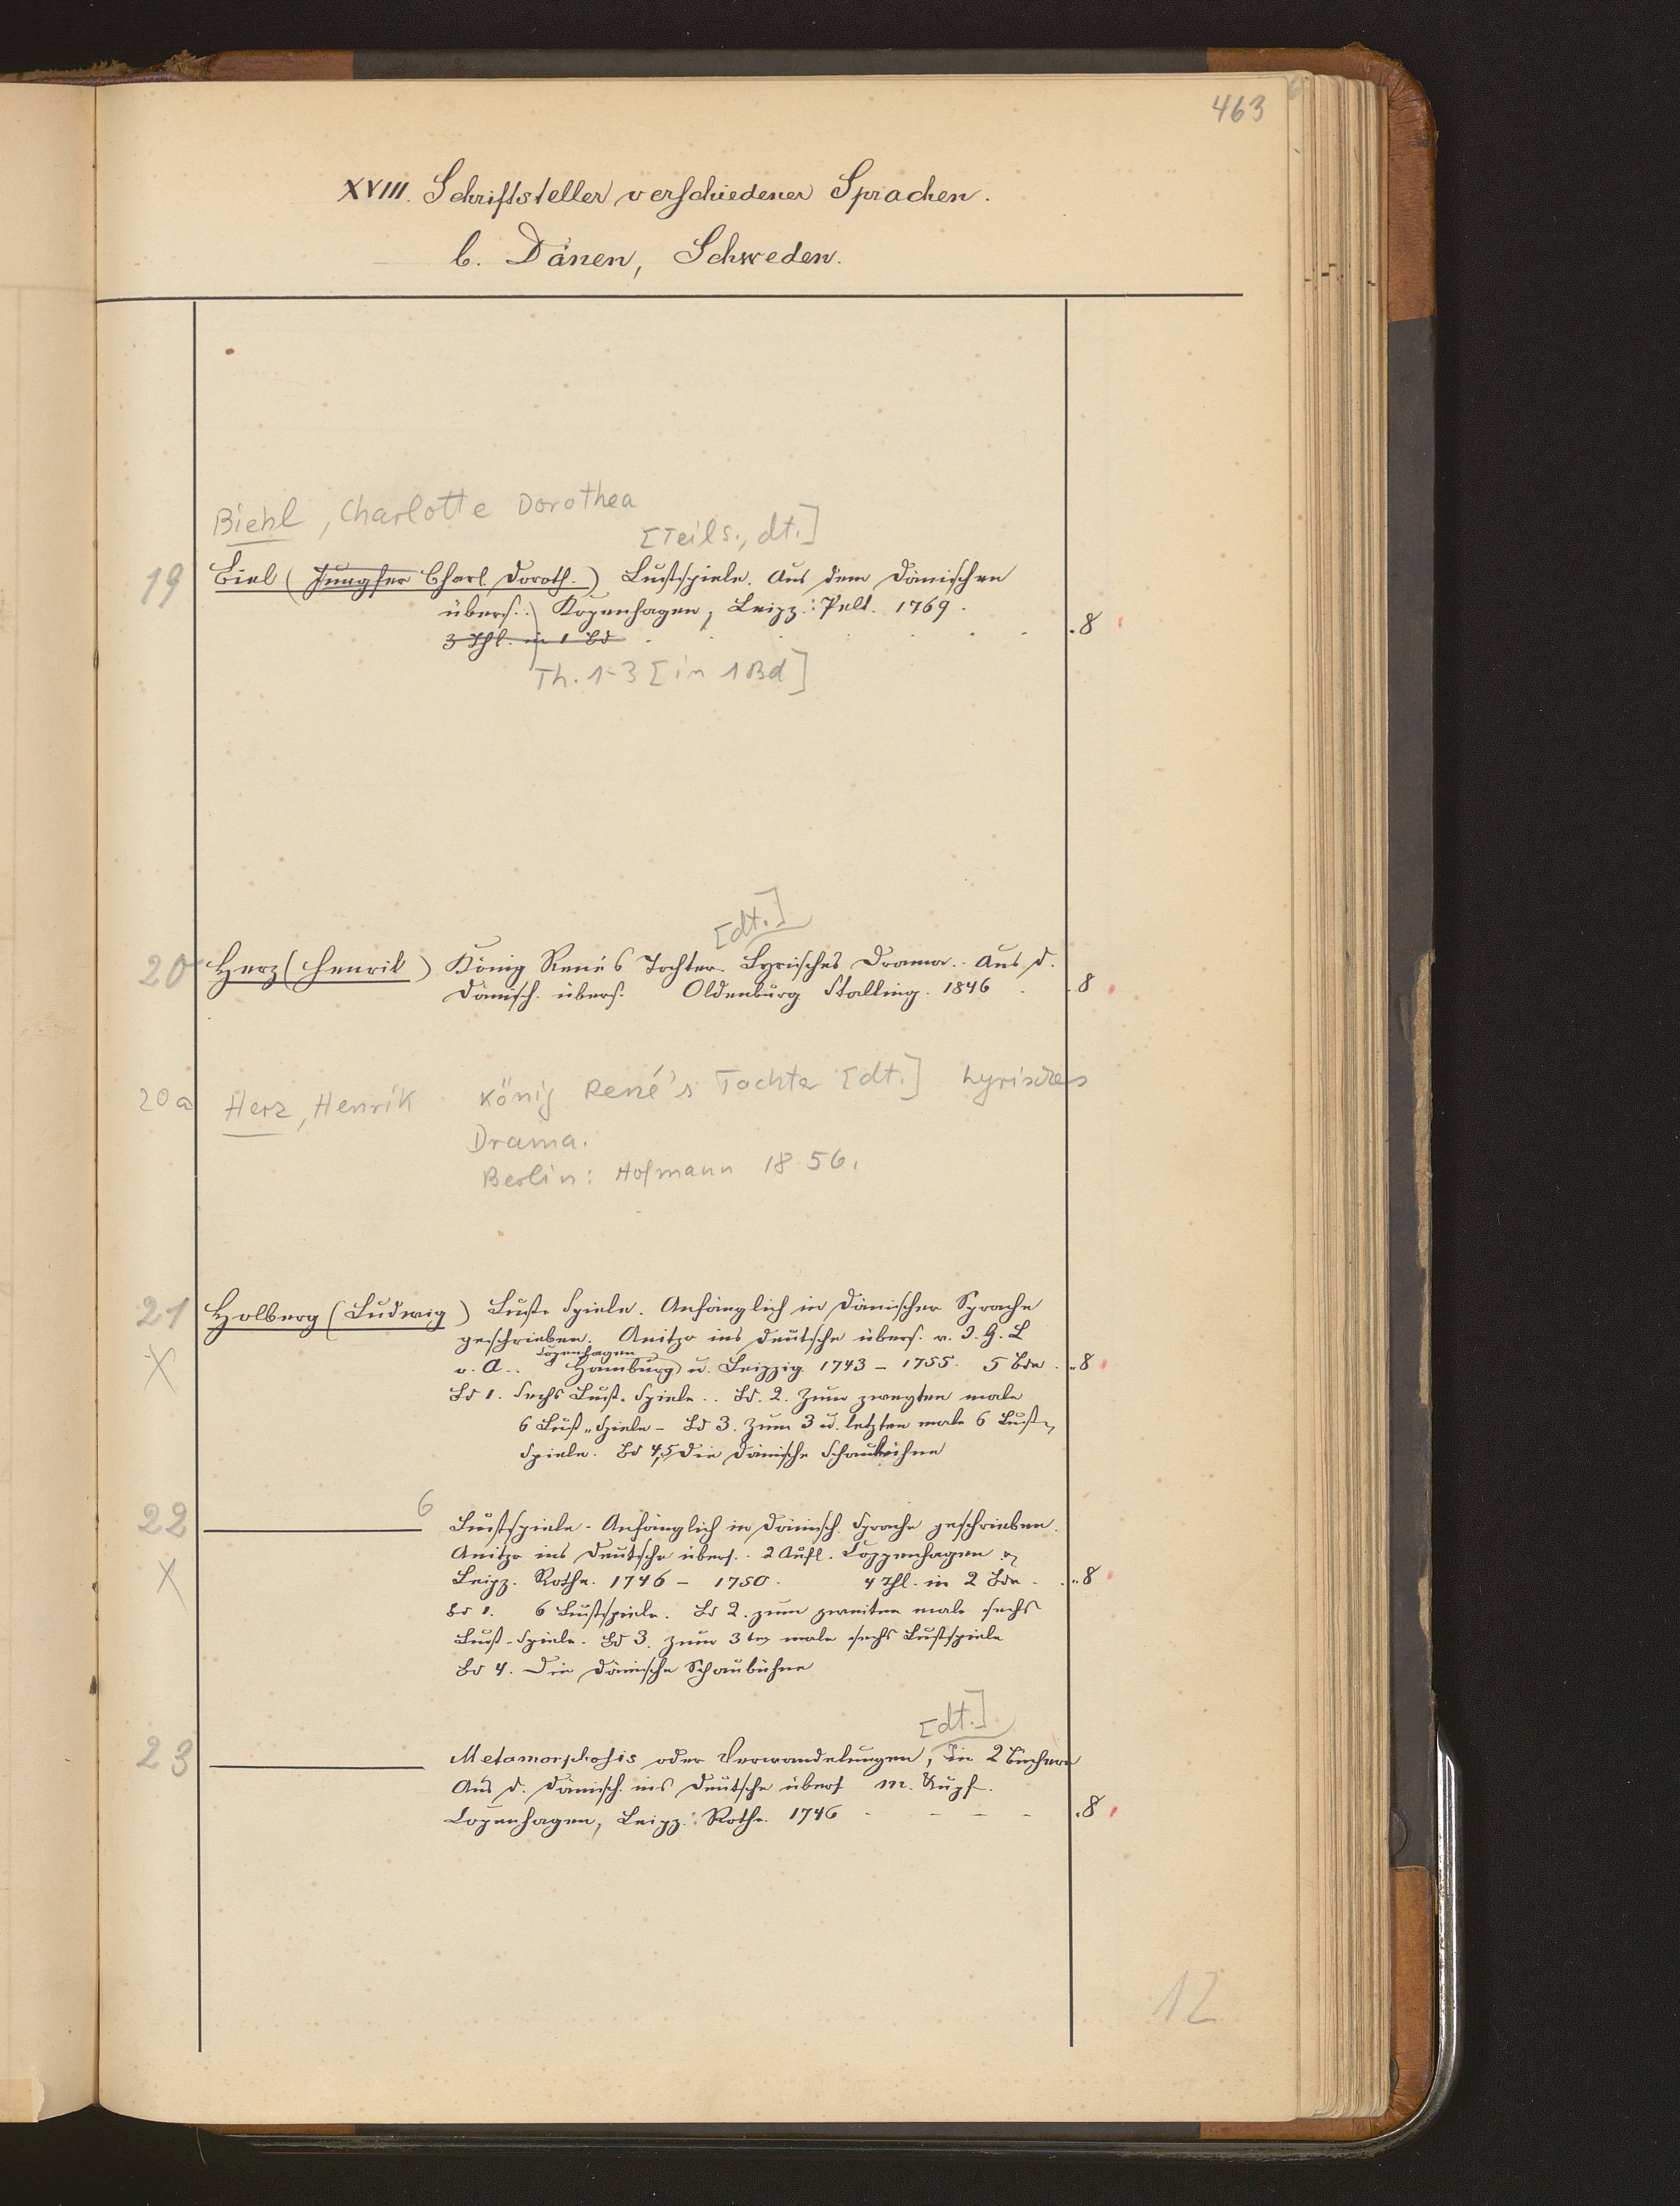 463
XVIII. Schriftsteller verschiedener Sprachen.
b. Dänen, Schweden.
Biehl, Charlotte Dorothea
[Teils., dt.]
19 Biel (Jungfer Charl. Doroth.) Lustspiele. Aus dem Dänischen
übers. Kopenhagen, Leipz.: Pelt. 1769.
3 Thl. in 1 Bd . 8
Th. 1-3 [in 1 Bd]
[dt.]
20 Herz (Henrik) König René's Tochter. Lyrisches Drama. Aus d.
Dänisch. übers. Oldenburg Stalling. 1846 . 8
20a Herz, Henrik König René's Tochter [dt.] Lyrisches
Drama.
Berlin: Hofmann 1856.
21 Holberg (Ludwig) Lust-Spiele. Anfänglich in Dänischer Sprache
geschrieben. Anitzo ins Deutsche übers. v. J. G. L
Copenhagen
X v. A.. Hamburg u. Leipzig 1743 – 1755. 5 Bde . 8
Bd 1. Sechs Lust-Spiele.. Bd. 2. Zum zweyten male
6 Lust-Spiele – Bd 3. Zum 3 u. letzten male 6 Lust-
Spiele. Bd 4,5 Die Dänische Schaubühne
22 6 Lustspiele - Anfänglich in Dänisch. Sprache geschrieben.
Anitzo ins Deutsche übers.. 2 Aufl. Coppenhagen &
X Leipz. Rothe. 1746 – 1750. 4 Thl. in 2 Bde . 8
Bd 1. 6 Lustspiele. Bd 2. zum zweiten male sechs
Lust-Spiele. Bd 3. zum 3ten male sechs Lustspiele
Bd 4. Die Dänische Schaubühne
[dt.]
23 Metamorphosis oder Verwandelungen, in 2 Büchern
Aus d. Dänisch. ins Deutsche übers m. Kupf.
Copenhagen, Leipz.: Rothe. 1746 - - - - . 8
12